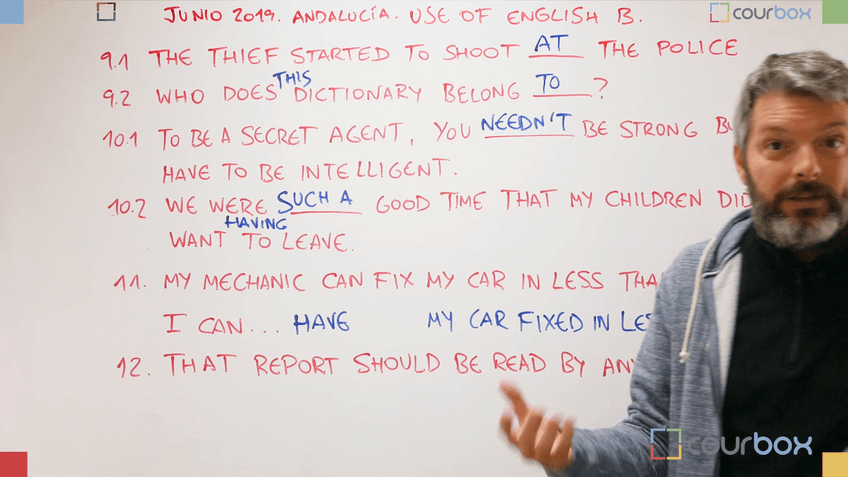 JUNIO 2019. ANDALUCÍA. USE OF ENGLISH B.
courbox
9.1 THE THIEF STARTED TO SHOOT AT THE POLICE
THIS
9.2 WHO DOES DICTIONARY BELONG TO ?
10.1 TO BE A SECRET AGENT, YOU NEEDN'T BE STRONG
HAVE TO BE INTELLIGENT.
10.2 WE WERE SUCH A GOOD TIME THAT MY CHILDREN
HAVING
WANT TO LEAVE.
11. MY MECHANIC CAN FIX MY CAR IN LESS
I CAN... HAVE MY CAR FIXED IN
12. THAT REPORT SHOULD BE READ BY
courbox